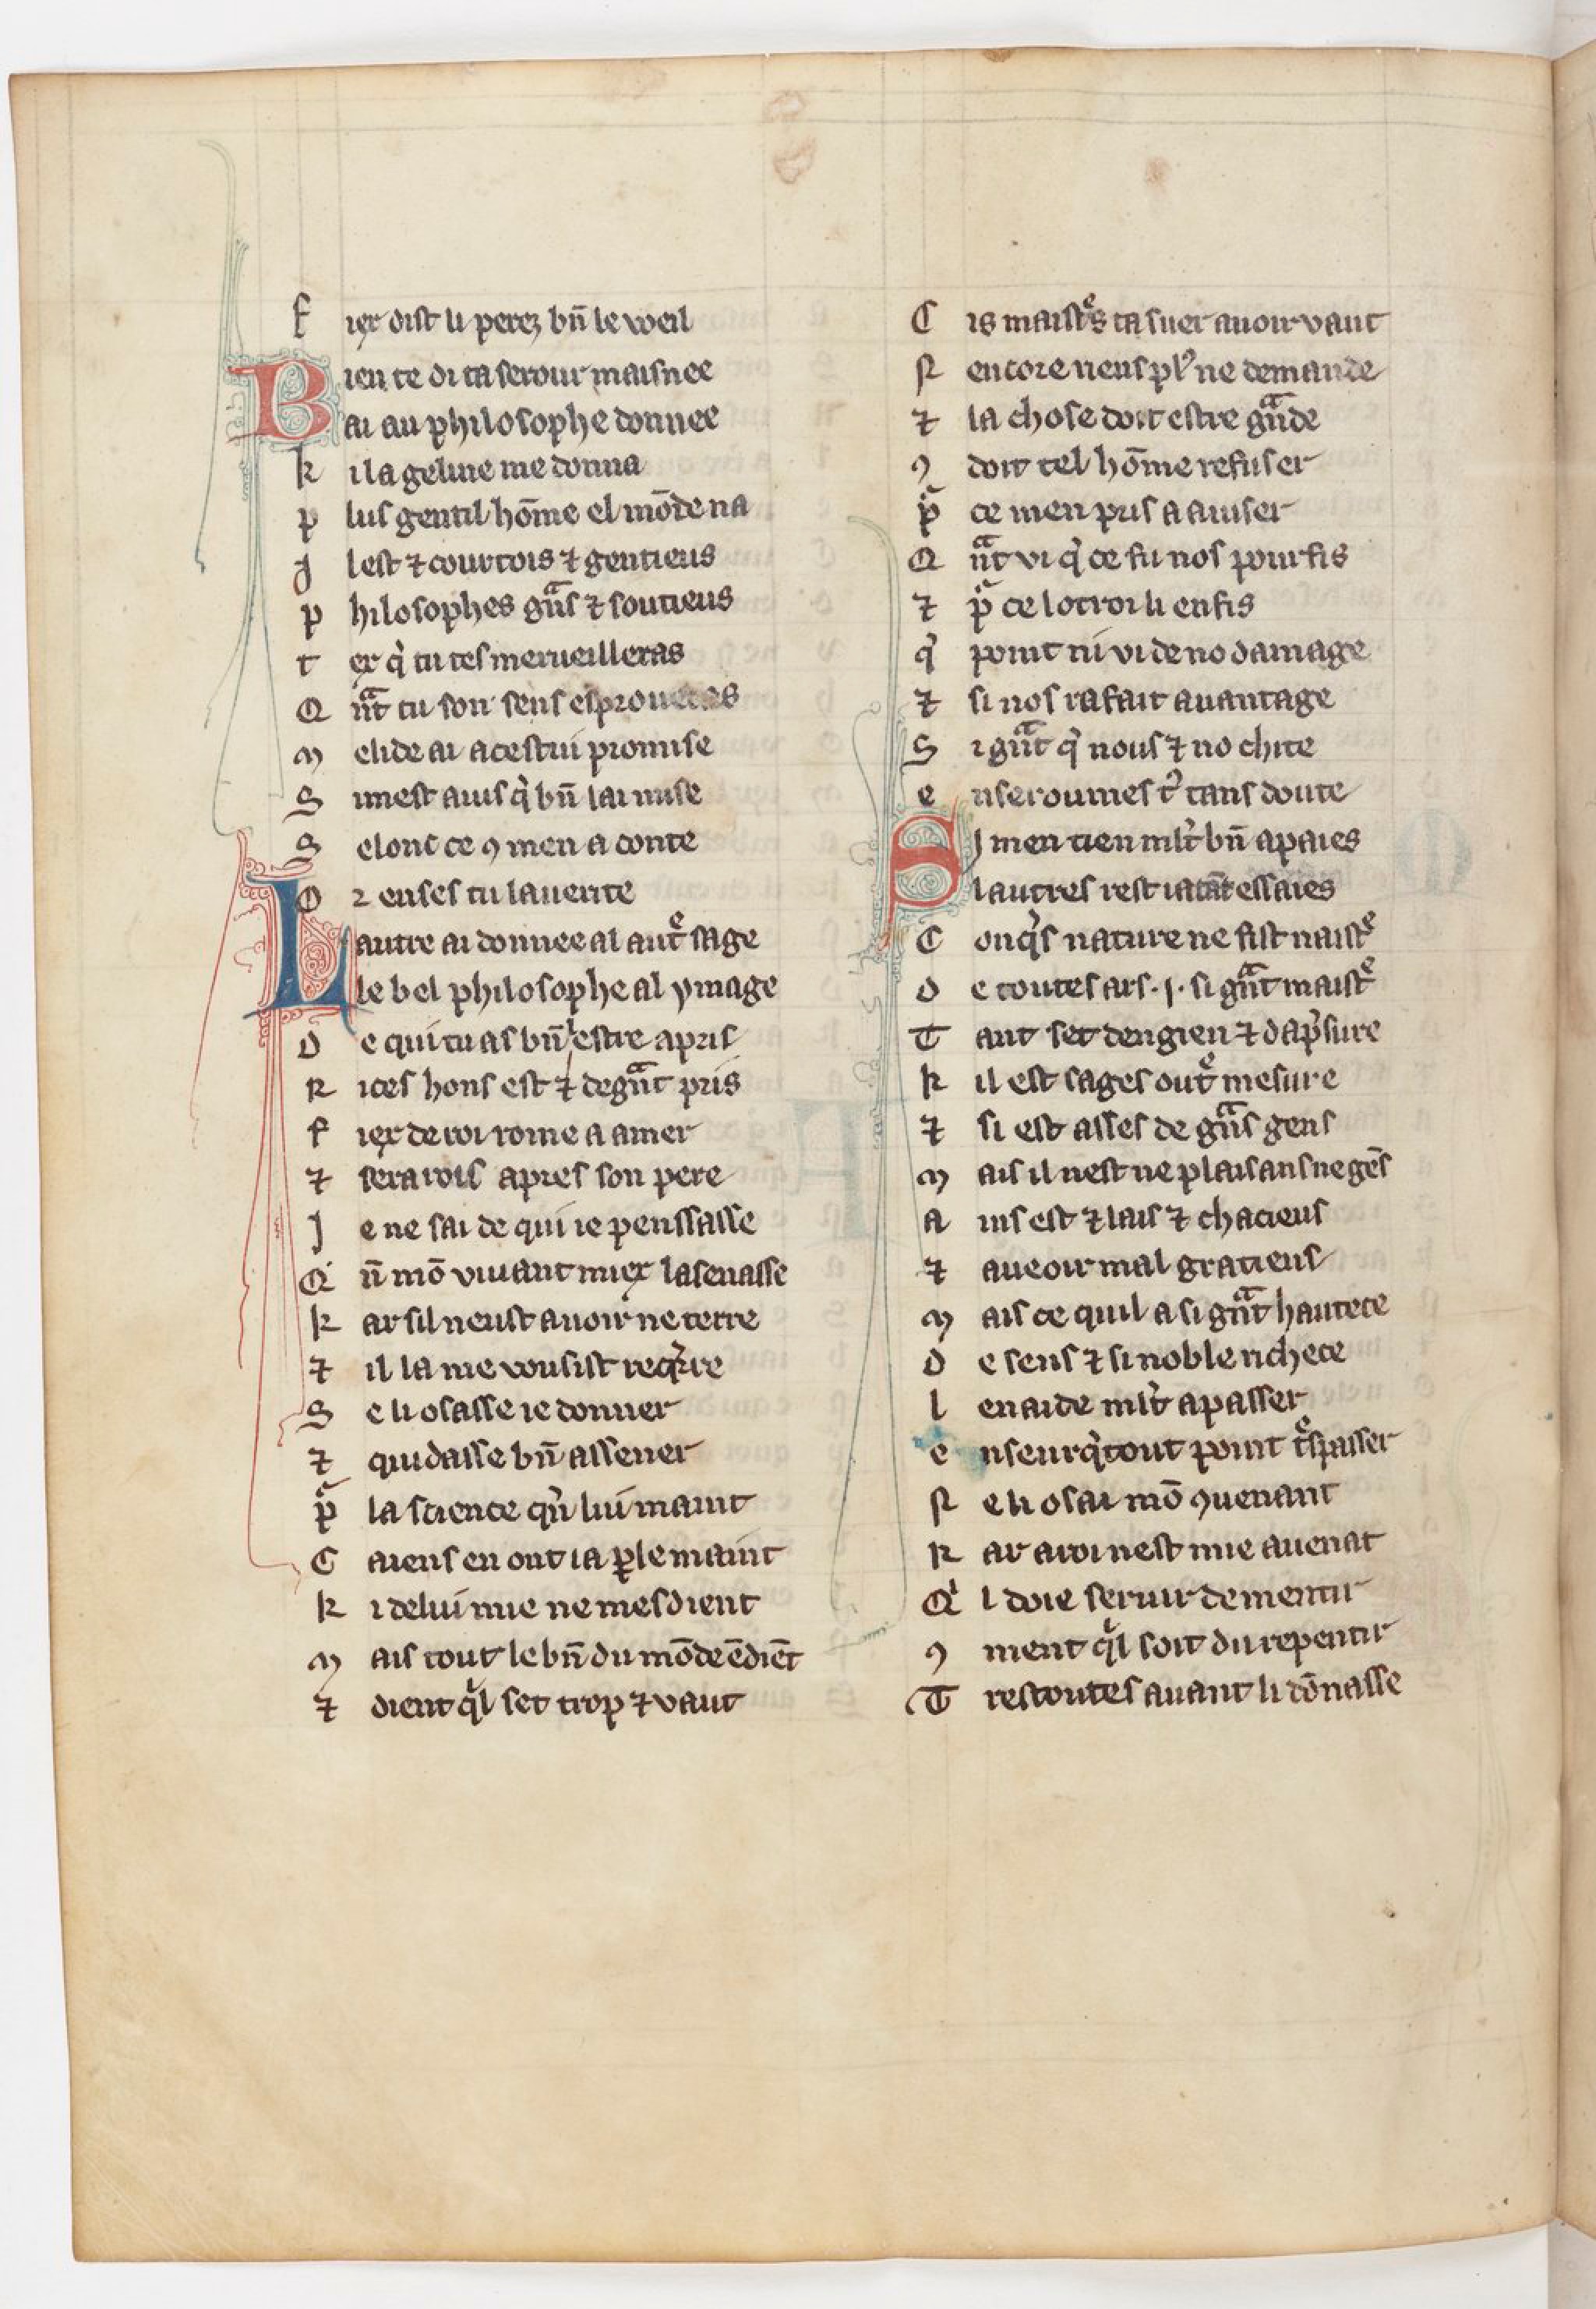 f iex dist li perez bn̄ le voeil
Bien te di ta serour maisnee
ai au philosophe donnee
k i la geline me donna
p lus gentil hōme el mōde na
J l est ⁊ courtois ⁊ gentieus
p hilosophes gͣns ⁊ soutieus
t ex q̇ tu tes merueilleras
Q nͣt tu son sens esproueras
m elide ai a cestui promise
S im est auis q̇ bn̄ lai mise
S elonc ce ꝯ men a conte
O r enses tu la uerite
Lautre ai donnee al autͤ sage
le bel philosophe al ymage
d e qui tu as bn̄ estre apris
R ices hons est ⁊ de gͣnt pris
f iex de roi rome a amer
⁊ sera rois apres son pere
J e ne sai de qui ie penssasse
Q n̄ mō viuant miex lasenasse
k ar sil neust auoir ne terre
⁊ il la me vousist reqͥrre
S e li osasse ie donner
⁊ quidasse bn̄ assener
pͬ la science qͥn lui maint
C aiens en ont ia ꝑle maint
k i de lui mie ne mesdient
m ais tout le bn̄ du mōde ē diēt
⁊ dient qͥl set trop ⁊ vaut
C is maistͤs ta suer auoir vaut
R encore riens plꝰ ne demande
⁊ la chose doit estre gͣnde
ꝯ doit tel hōme refuser
pͬ ce men pris a auiser
Q nͣt vi q̇ ce fu nos pourfis
⁊ pͬ ce lotroi li en fis
q̇ point ni vi de no damage
⁊ si nos ra fait auantage
S i gͣnt q̇ nous ⁊ no chite
e nseroumes tͬ tans doute
Si men tien ml̄t bn̄ apaies
lautres rest ia tāt essaies
C onqͥs nature ne fist naistͤ
d e toutes ars .j. si gͣnt maistͤ
T ant set dengien ⁊ dap̄sure
k il est sages outͤ mesure
⁊ si est asses de gͣns gens
m ais il nest ne plaisans ne gēs
a ins est ⁊ lais ⁊ chacieus
⁊ a ueoir mal gratieus
m ais ce quil a si gͣnt hautece
d e sens ⁊ si noble richece
l en aide ml̄t a passer
e nseurq̇tout point tͤspasser
R e li osai mō ꝯuenant
k ar a roi nest mie auenāt
Qͥ l doie seruir de mentir
ꝯ ment qͥl soit du repentir
T restoutes auant li dōnasse